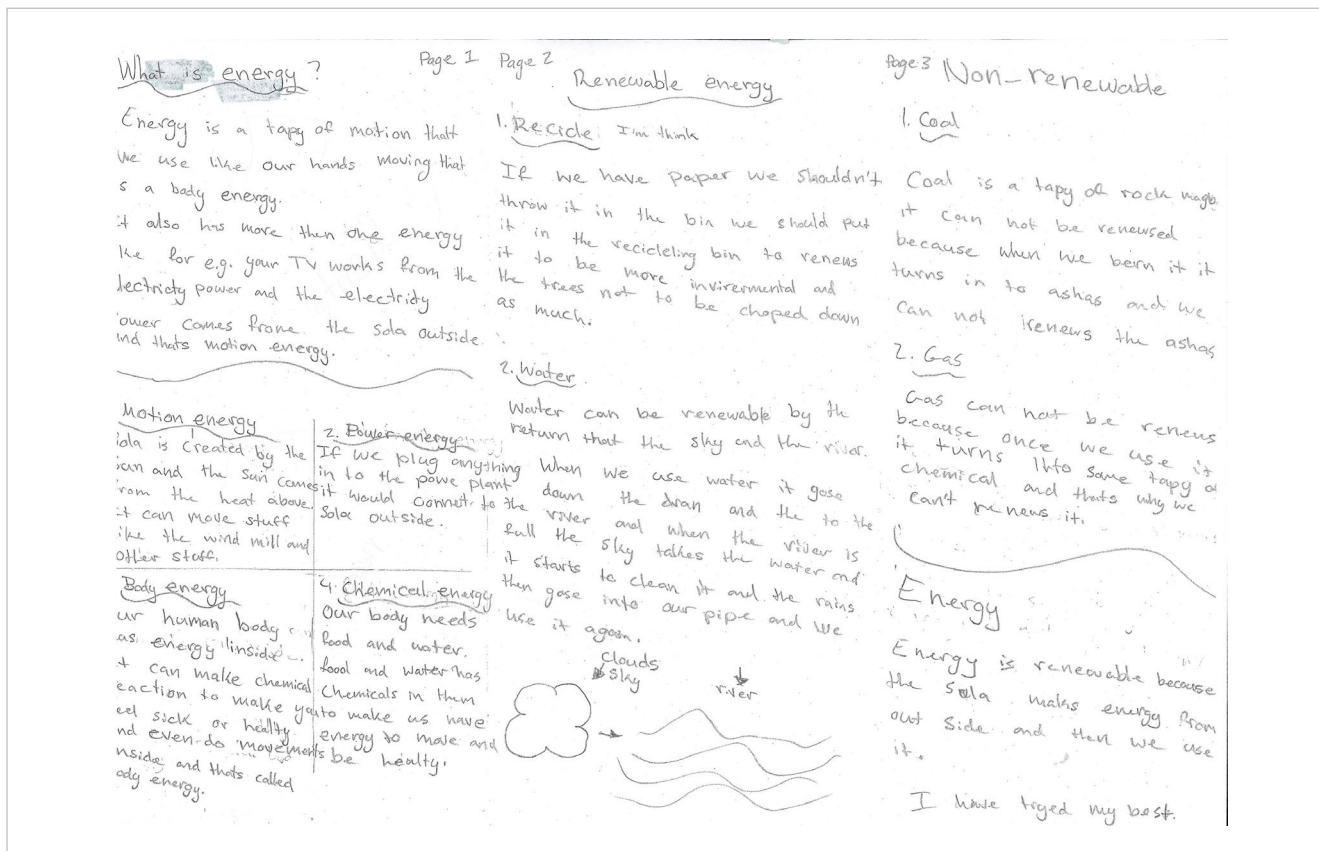 Page 1
What is energy?
Energy is a tapy of motion thatt
we use like our hands moving that
s a body energy.
it also has more then one energy
ke for e.g. your TV works from the
lectricty power and the electricity
ower comes frome the sola outside.
ind thats motion energy.
Motion energy
iola is created by the
un and the sun comes
rom the heat above.
it can move stuff
ike the wind mill and
other stuff.
2. Power energy
If we plug anything
in to the powe plant
it would connect to the
Sola outside.
Body energy
ur human body
as energy inside.
t can make chemical
eaction to make you
eel sick or healty
nd even do movements
nside and thats called
ody energy.
4. Chemical energy
Our body needs
food and water.
food and water has
Chemicals in them
to make us have
energy to move and
be healty.
Page 2
Renewable energy
1. Recicle I'm think
If we have paper we shouldn't
throw it in the bin we should put
it in the recicleling bin to renews
it to be more invirermental and
the trees not to be choped down
as much.
2. Water
Water can be renewable by the
return that the sky and the river.
When we use water it gose
down the dran and the to the
river and when the river is
full the sky talkes the water and
it starts to clean it and the rains
then gose into our pipe and we
use it again.
Clouds
Sky
river
Page 3
Non-renewable
1. Coal
Coal is a tapy of rock
it can not be renewsed
because when we bern it it
turns in to ashas and we
can not renews the ashas
2. Gas
Gas can not be renews
because once we use it
it turns into some tapy of
chemical and thats why we
can't renews it.
Energy
Energy is renewable because
the Sola makes energy from
out side and then we use
it.
I have tryed my best.